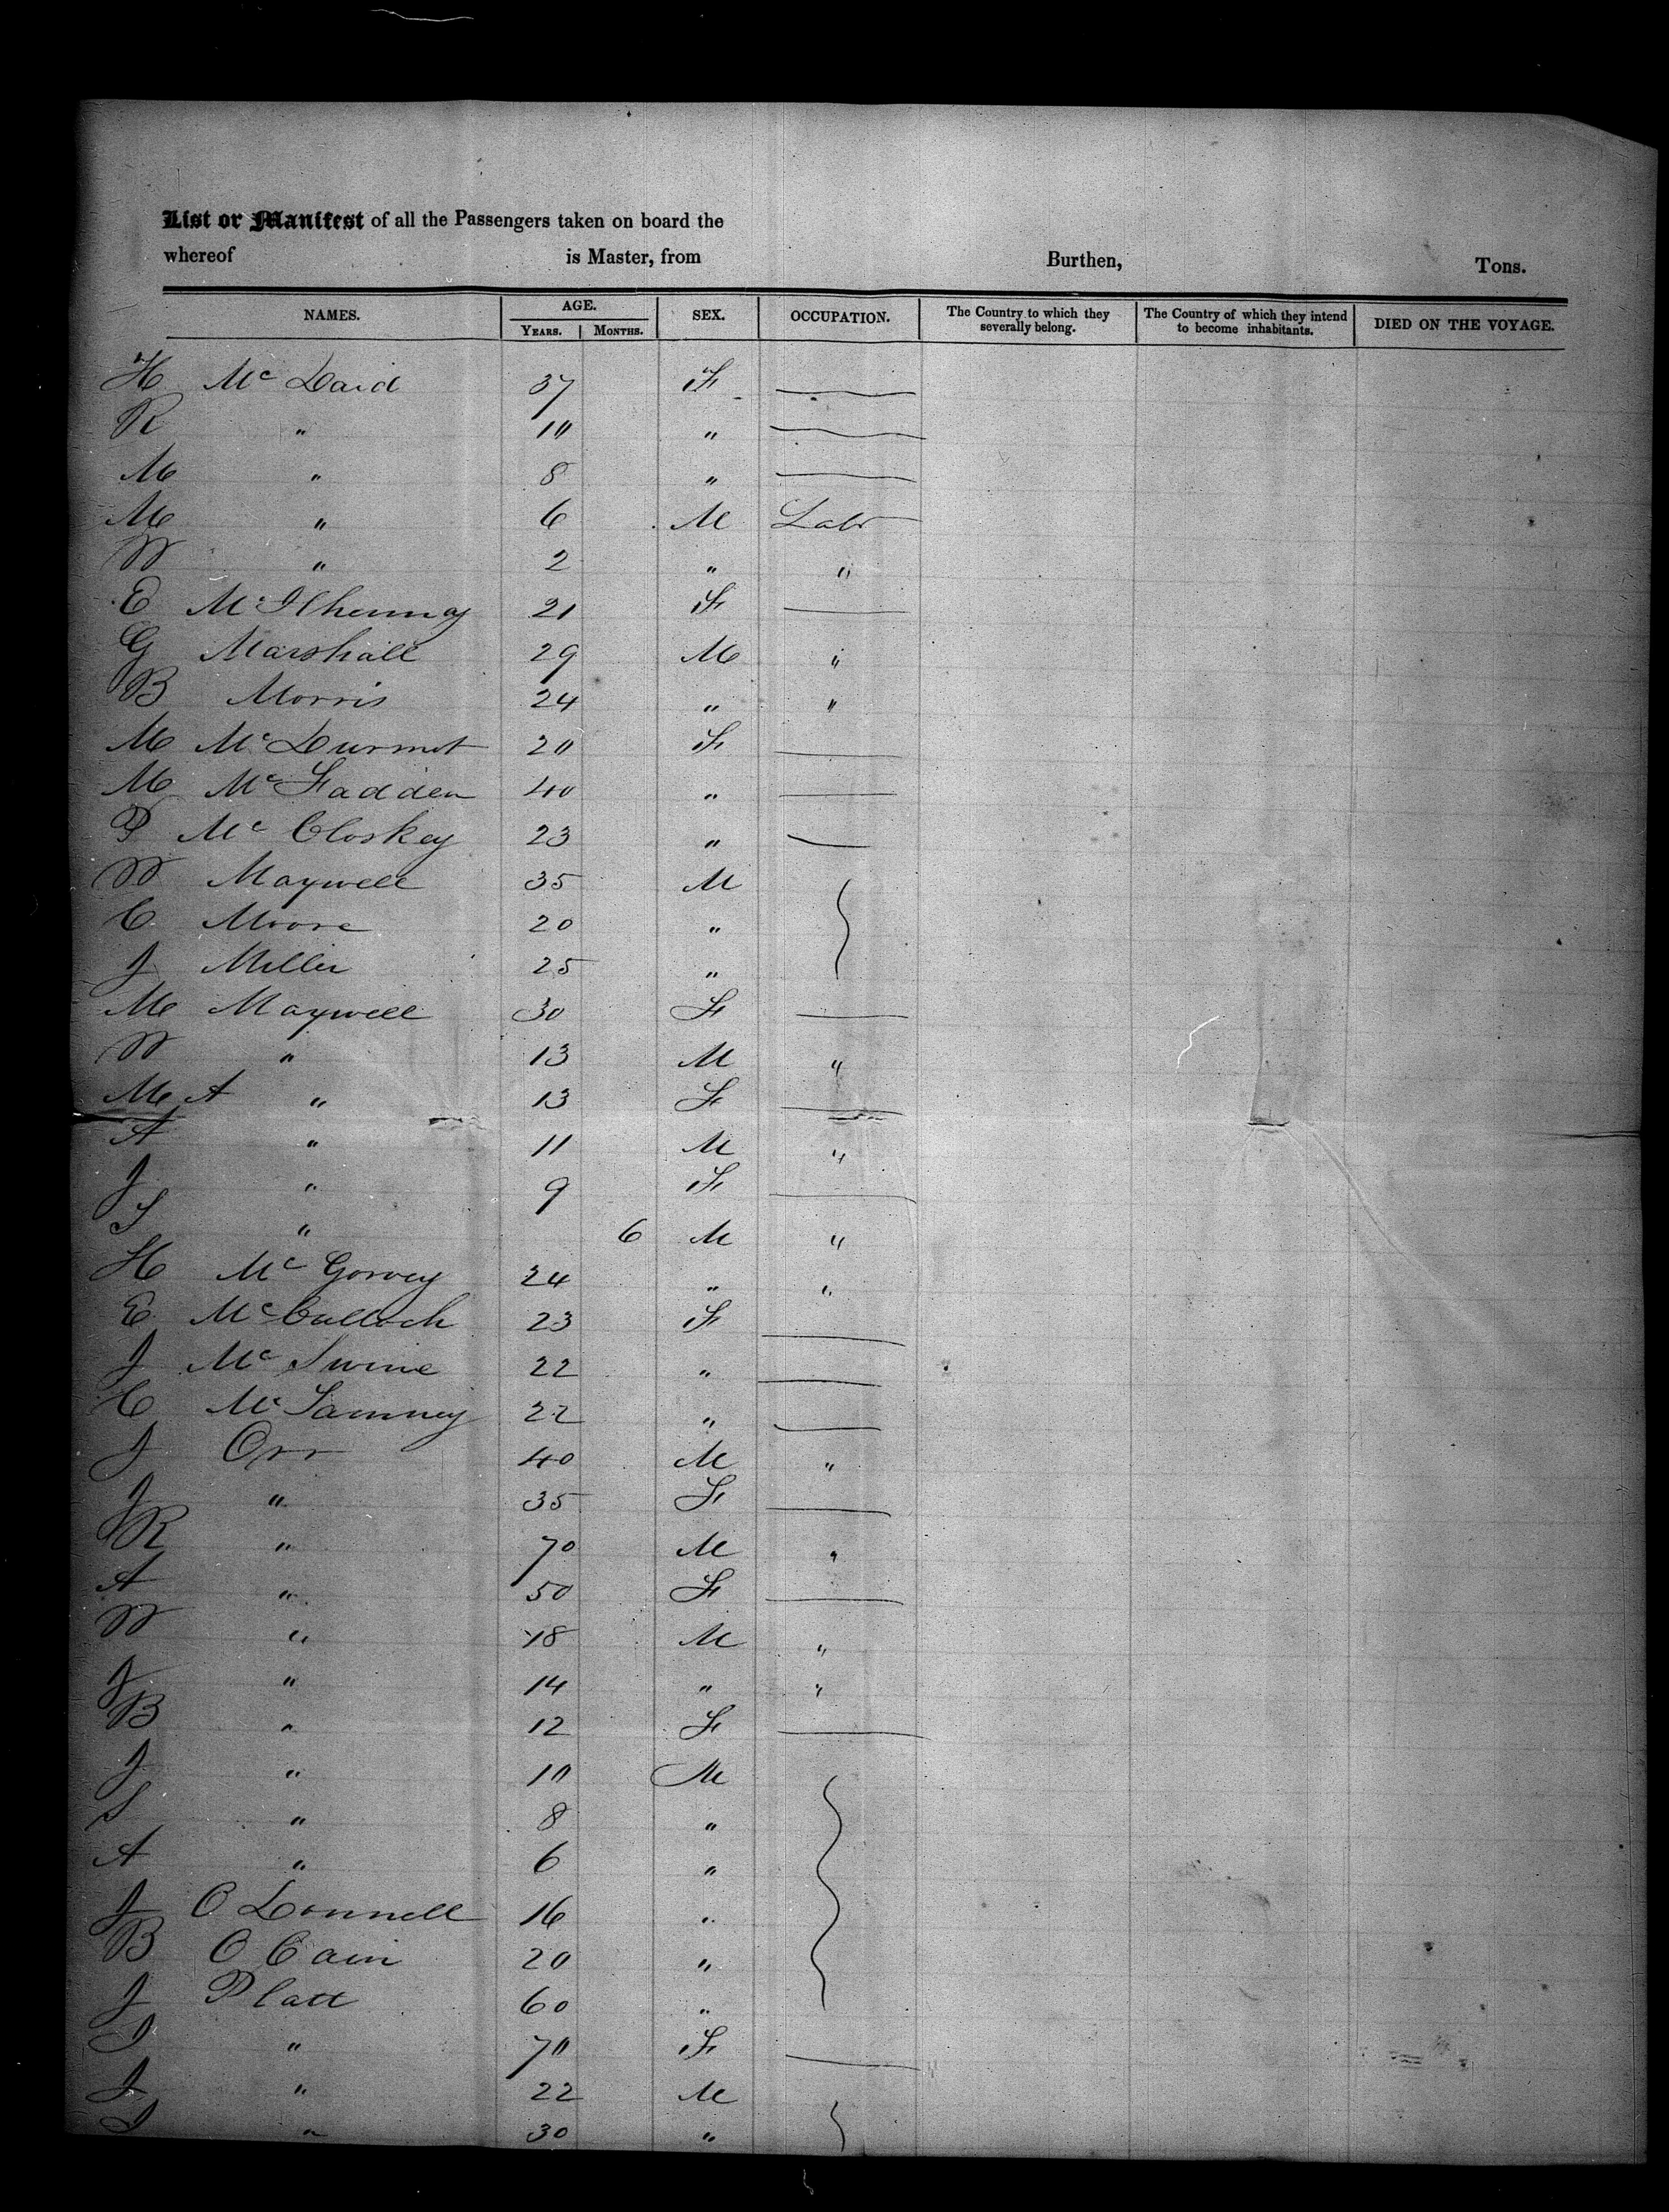 List or Manifest of all the Passengers taken on board the
whereof is Master, from Burthen, Tons.
NAMES. AGE. SEX. OCCUPATION. The Country to which they severally belong. The Country of which they intend to become inhabitants. DIED ON THE VOYAGE.
YEARS. MONTHS.
H Mc Daid 37 F
R " 10 "
M " 8 "
M " 6 M Labr
W " 2 " "
E McIlhenny 21 F
G Marshall 29 M "
B Morris 24 " "
M McDurmot 20 F
M McFadden 40 "
P Mc Closkey 23 "
W Maxwell 35 M
C Moore 20 "
J Miller 25 "
M Maxwell 30 F
W " 13 M "
M A " 13 F
A " 11 M "
J " 9 F
S " 6 M "
H Mc Gorvey 24 " "
E McCulloch 23 F
J Mc Swine 22 "
C 22 "
J Orr 40 M "
J " 35 F
R " 70 M "
A " 50 F
W " 18 M "
J " 14 " "
B " 12 F
J " 10 M
S " 8 "
A " 6 "
J O Donnell 16 "
B O Cain 20 "
J Platt 60 "
I " 70 F
J " 22 M
I " 30 "